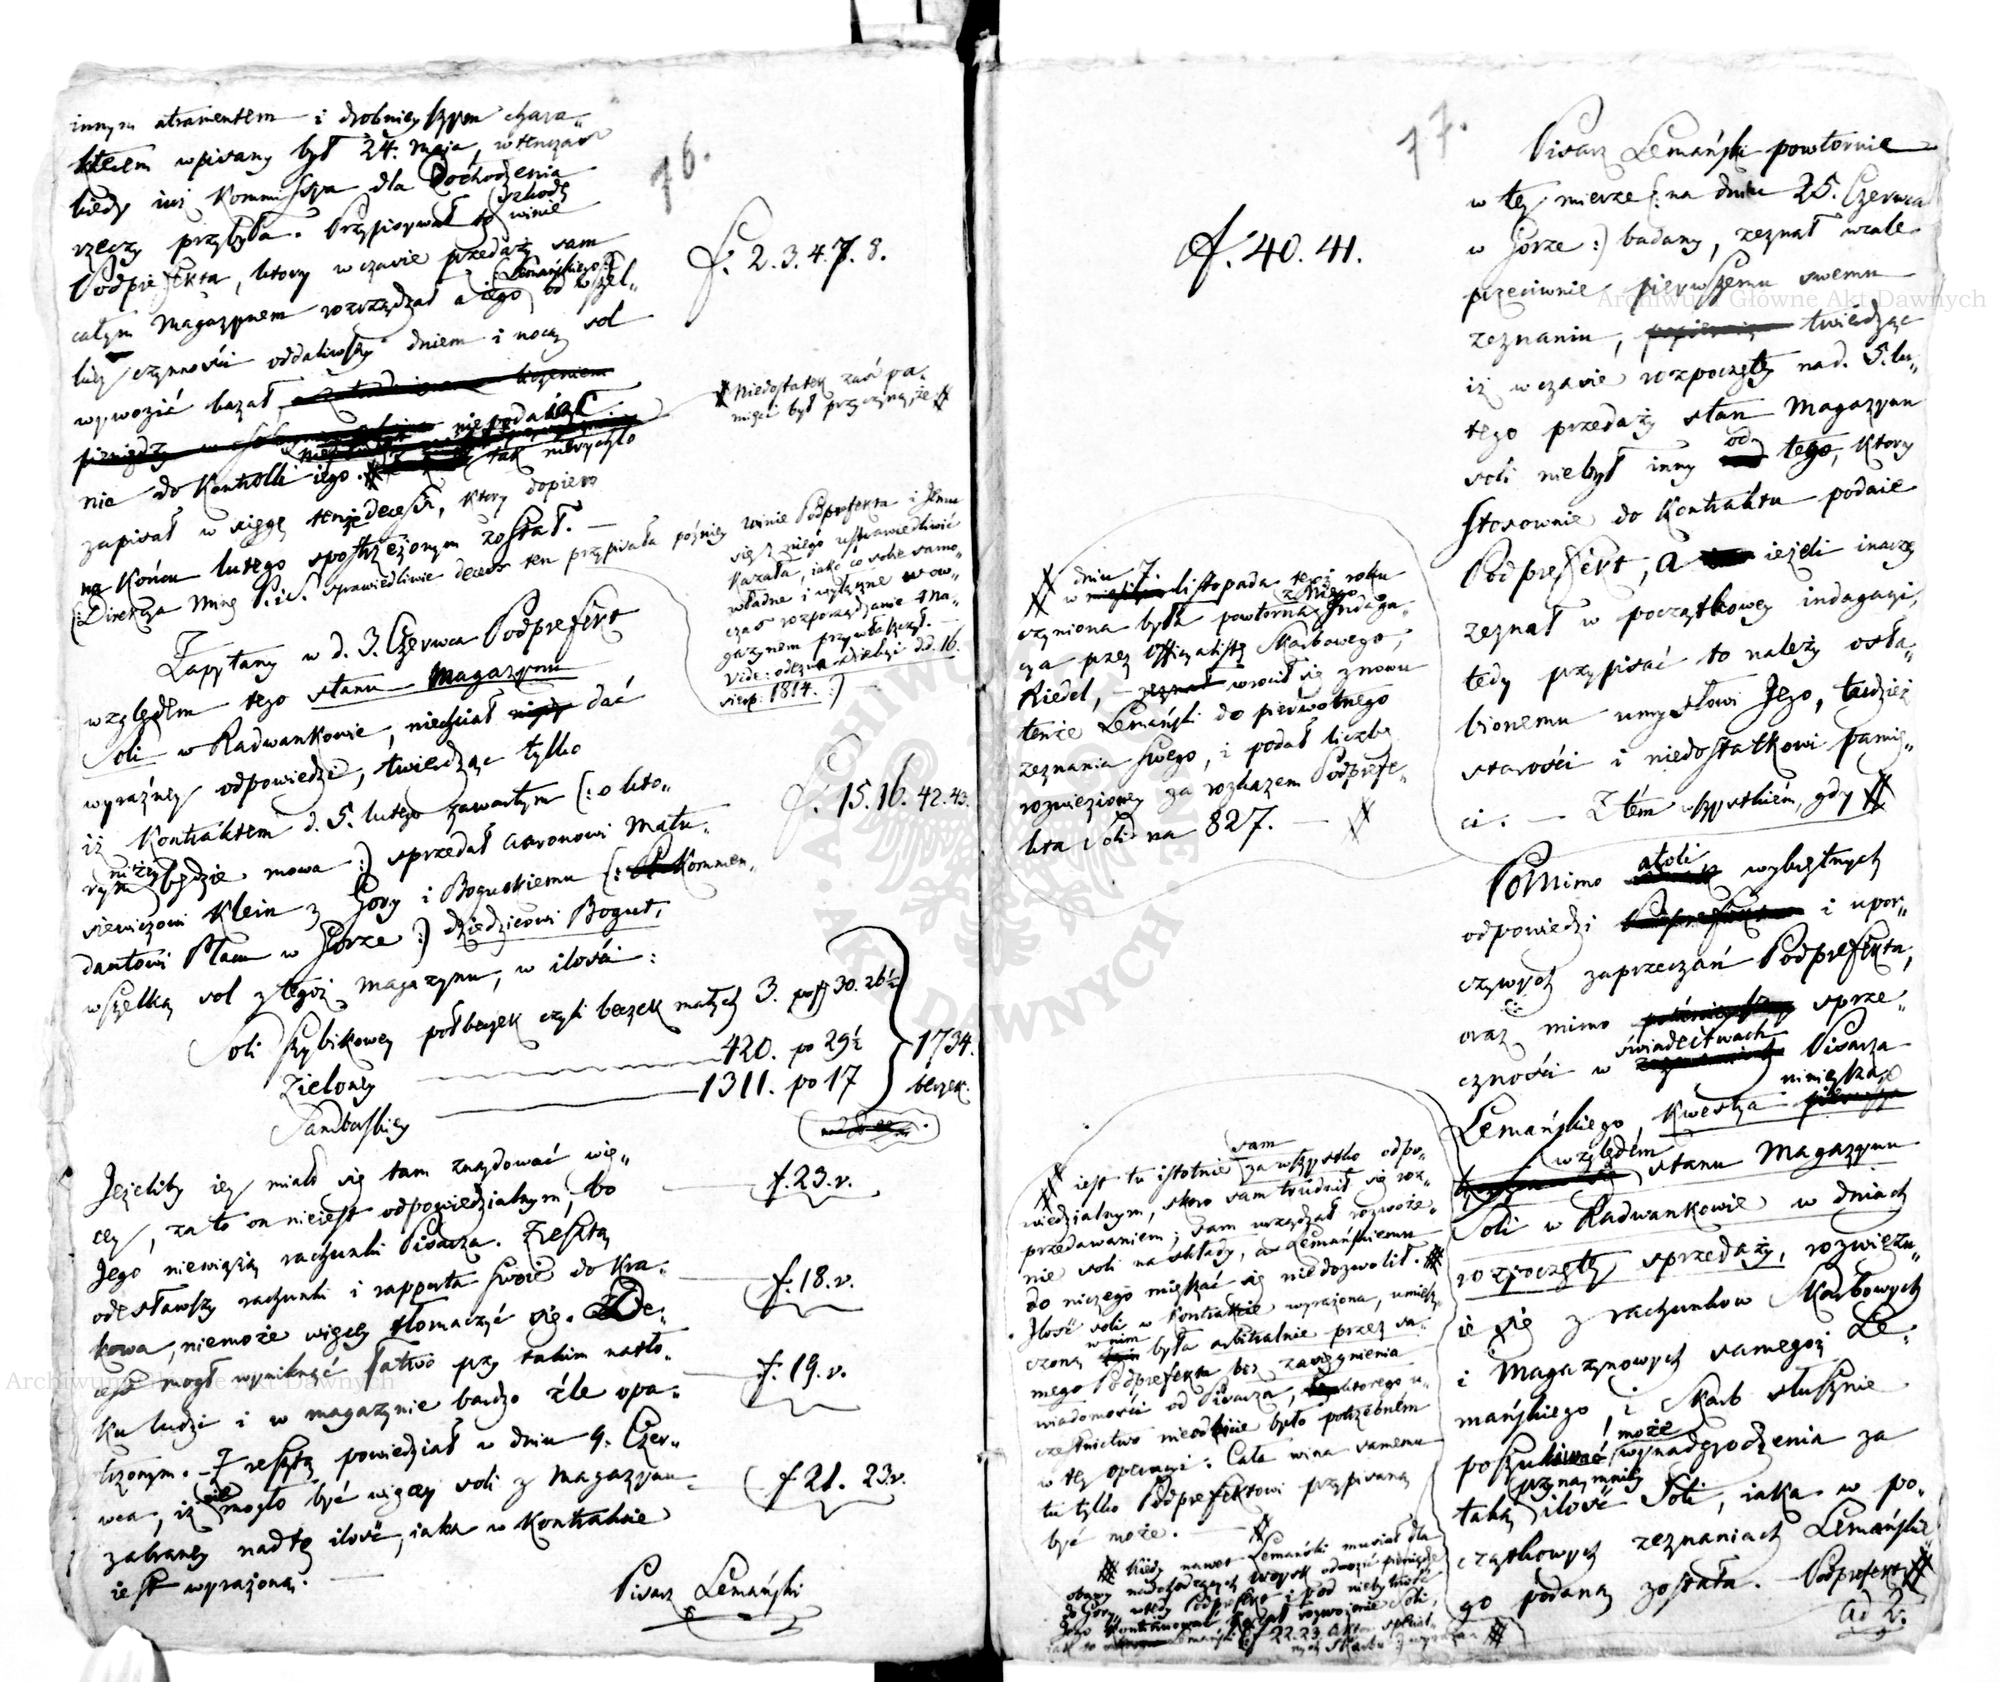 76.
innym atramentem i drobnieyszym chara„
kterem wpisany był 24. Maja, wtenczas
kiedy iuż Kommissya dla Dochodzenia
rzeczy przybyła. Przypisywał tę szkodę winie
Podprefekta, ktory w czasie przedaży sam
całym Magazynem rozrządzał a iego (Lemańskiego) od wszel„
kiey czynności oddaliwszy dniem i nocą sol
wywozić kazał,
nie podaiąc
nie do Kontrolli iego. tak nierychło
zapisał w xięgę tenże decess, ktory dopiero
na Końcu lutego spostrzeżonym został. —
(: Direkcya Mineg P. i S. sprawiedliwie decess ten przypisała poźniey winie Podprefekta i Jemu
się z niego usprawiedliwić
kazała, iako co sobie samo„
władne i wyłączne wow„
czas rozporządzanie Ma„
gazynem przywłaszczył. —
Vide: odezwa Direkcyi d.d. 16.
sierp: 1814. :)
f. 2. 3. 4. 7. 8.
Niedostatek zaś pa„
mięci był przyczyną, że
Zapytany w d. 3. Czerwca Podprefekt
względem tego stanu Magazynu
Soli w Radwankowie, niechciał dać
wyraźney odpowiedzi, twierdząc tylko
iż Kontraktem d. 5. lutego zawartym (: o kto„
rym niżey będzie mowa :) sprzedał Aaronowi Matu„
siewiczowi Klein z Gory i Boguskiemu (: Kommen„
dantowi Placu w Gorze :) dziedzicowi Bogut,
wszelką sol z tegoż Magazynu, w ilości:
f. 15. 16. 42. 43.
Soli Szybikowey połbeczek czyli beczek małych 3. po ff 30. 26½
Zieloney 420. po 29½
Samborskiey 1311. po 17
1734.
beczek.
Jeżeliby iey miało się tam znaydować wię„
cey, za to on nieiest odpowiedzialnym, bo
Jego niewiążą rachunki Pisarza. Zresztą
odesławszy rachunki i rapporta swoie do Kra„
kowa, niemoże więcey tłomaczyć się. De„
cess mogł wyniknąć łatwo przy takim natło„
ku ludzi i w magazynie bardzo źle opa„
trzonym. — Zresztą powiedział w dniu 9. Czer„
wca, iż nie mogło być więcey soli z Magazynu
zabraney nad tę ilość, iaka w Kontrakcie
iest wyrażona. —
f. 23. v.
f. 18. v.
f. 19. v.
f. 21. 23 v.
Pisarz Lemański
77.
Pisarz Lemański powtornie
w tey mierze (: na dniu 25. Czerwca
w Gorze :) badany, zeznał wcale
przeciwnie pierwszemu swemu
zeznaniu, twierdząc
iż w czasie rozpoczętey na d. 5. lu„
tego przedaży stan Magazynu
soli niebył inny od tego, ktory
stosownie do Kontraktu podaie
Podprefekt, a ieżeli inaczey
zeznał w początkowey indagacyi,
tedy przypisać to należy osła„
bionemu umysłowi Jego, tudzież
starości i niedostatkowi pamię„
ci. — Z tém wszystkiém, gdy
f. 40. 41.
dniu 7.
w listopada tegoż roku
czyniona była powtorna z Niego Indaga„
cya przez Officyalistę Skarbowego,
Riedel, — wrocił się znowu
tenże Lemański do pierwotnego
zeznania swego, i podał liczbę
rozwiezioney za rozkazem Podprefe„
kta Soli na 827. —
Pomimo atoli wybiegłnych
odpowiedzi i upor„
czywych zaprzeczań Podprefekta,
oraz mimo sprze„
czności w świadectwach Pisarza
Lemańskiego, Kwestya ninieysza
względem stanu Magazynu
Soli w Radwankowie w dniach
rozpoczętey sprzedaży, rozwięzu„
ie się z rachunkow Skarbowych
i Magazynowych samegoż Le„
mańskiego, i Skarb słusznie
poszukiwać może wynadgrodzenia za
taką przynaymniey ilość Soli, iaka w po„
czątkowych zeznaniach Lemańskie„
go podana została. — Podprefekt
ad 2.
iest tu istotnie sam za wszystko odpo„
wiedzialnym, skoro sam trudnił się roz„
przedawaniem, sam urządzał rozwoże„
nie soli na składy, a Lemańskiemu
do niczego mięszać się niedozwolił.
Ilość soli w Kontrakcie wyrażona, umiesz„
czona w nim była arbitralnie przez sa„
mego Podprefekta bez zasięgnienia
wiadomości od Pisarza, ktorego u„
czestnictwo nieodbicie było potrzebném
w tey operacyi. Cała wina samemu
tu tylko Podprefektowi przypisaną
być może. —
Kiedy nawet Lemański musiał dla
obawy nadchodzących Woysk odwozić pieniądze
do Gory, wtedy Podprefekt i pod niebytność
Jego Kontinuował rozwożenie Soli,
iak to Lemański (: f. 22. 23. Aktow
:) wyraża.